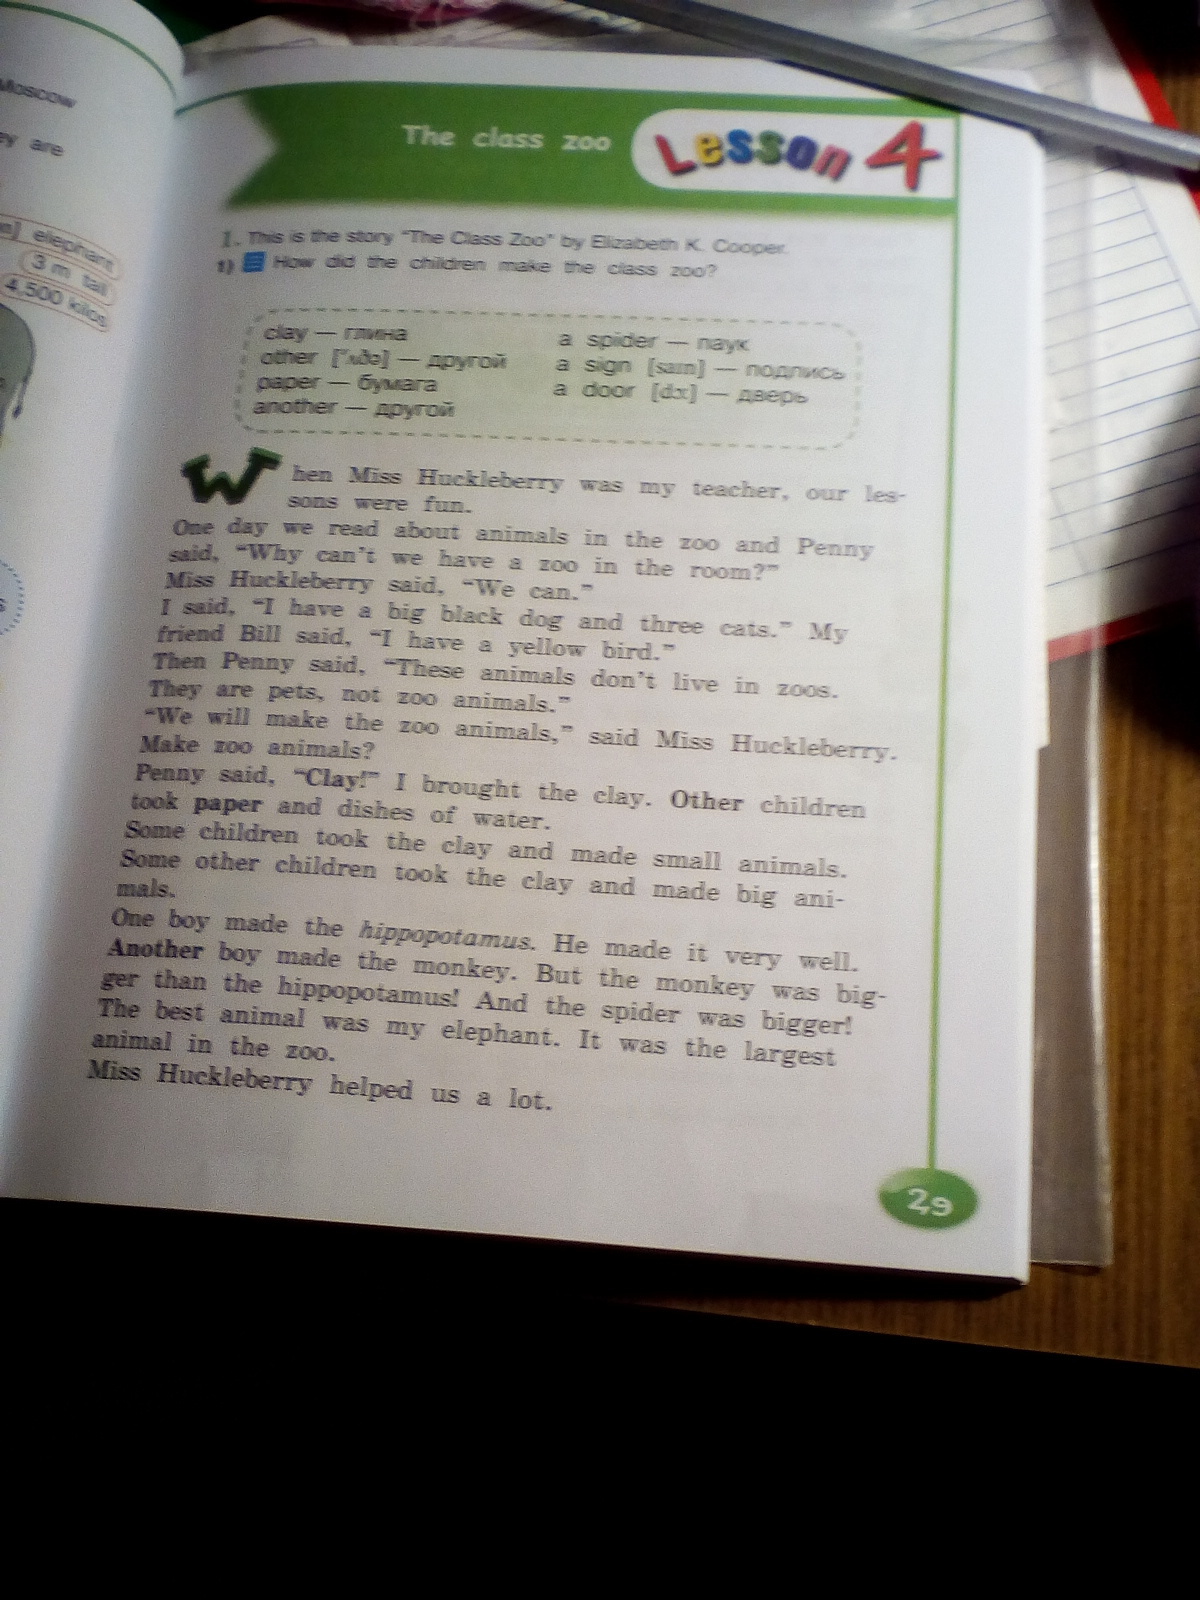 Moscow
ey are
elephant
3 m tall
4,500 kilos
The class zoo
Lesson 4
1. This is the story "The Class Zoo" by Elizabeth K. Cooper.
1) How did the children make the class zoo?
clay — глина
other ['ʌðə] — другой
paper — бумага
another — другой
a spider — паук
a sign [saɪn] — подпись
a door [dɔ:] — дверь
When Miss Huckleberry was my teacher, our les-
sons were fun.
One day we read about animals in the zoo and Penny
said, "Why can't we have a zoo in the room?"
Miss Huckleberry said, "We can."
I said, "I have a big black dog and three cats." My
friend Bill said, "I have a yellow bird."
Then Penny said, "These animals don't live in zoos.
They are pets, not zoo animals."
"We will make the zoo animals," said Miss Huckleberry.
Make zoo animals?
Penny said, "Clay!" I brought the clay. Other children
took paper and dishes of water.
Some children took the clay and made small animals.
Some other children took the clay and made big ani-
mals.
One boy made the hippopotamus. He made it very well.
Another boy made the monkey. But the monkey was big-
ger than the hippopotamus! And the spider was bigger!
The best animal was my elephant. It was the largest
animal in the zoo.
Miss Huckleberry helped us a lot.
29